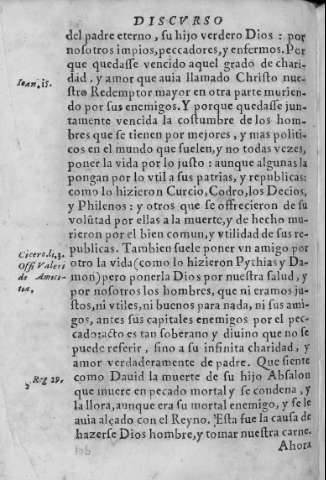 DISCVRSO
del padre eterno, su hijo verdero Dios : por
nosotros impios, peccadores, y enfermos. Por
que quedasse vencido aquel grado de chari-
Ioan, 15.
dad, y amor que auia llamado Christo nue-
stro Redemptor mayor en otra parte murien-
do por sus enemigos. Y porque quedasse jun-
tamente vencida la costumbre de los hom-
bres que se tienen por mejores, y mas politi-
cos en el mundo que suelen, y no todas vezes,
poner la vida por lo justo : aunque algunas la
pongan por lo vtil a sus patrias, y republicas:
como lo hizieron Curcio, Codro, los Decios,
y Philenos : y otros que se offrecieron de su
volũtad por ellas a la muerte, y de hecho mu-
rieron por el bien comun, y vtilidad de sus re-
publicas. Tambien suele poner vn amigo por
Cicero li. 3.
Offi Valeri
de Amici-
tia,
otro la vida (como lo hizieron Pythias y Da-
mon) pero ponerla Dios por nuestra salud, y
por nosotros los hombres, que ni eramos ju-
stos, ni vtiles, ni buenos para nada, ni sus ami-
gos, antes sus capitales enemigos por el pec-
cado: acto es tan soberano y diuino que no se
puede referir, sino a su infinita charidad, y
amor verdaderamente de padre. Que siente
Reg 19.
como Dauid la muerte de su hijo Absalon
que muere en pecado mortal y se condena, y
la llora, aunque era su mortal enemigo, y se le
auia alçado con el Reyno. Esta fue la causa de
hazerse Dios hombre, y tomar nuestra carne.
Ahora